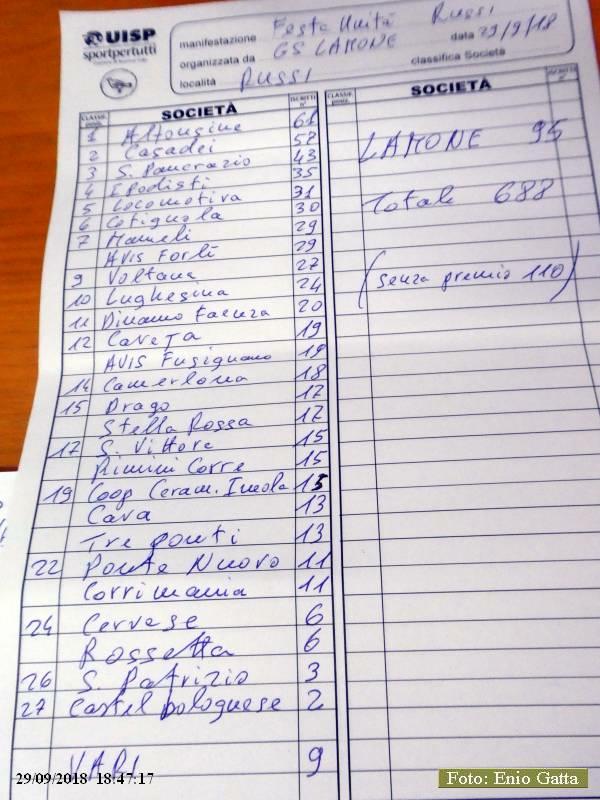 UISP
sportpertutti
manifestazione Festa Unità Russi
organizzata da GS LAMONE data 29/9/18
località RUSSI classifica Società
CLASSIF. SOCIETÀ ISCRITTI n°
1 Alfonsine 61
2 Casadei 52
3 S. Pancrazio 43
4 I Podisti 35
5 Locomotiva 31
6 Cotignola 30
7 Mameli 29
AVIS Forlì 29
9 Voltana 27
10 Lughesina 24
11 Dinamo Faenza 20
12 Caveja 19
AVIS Fusignano 19
14 Camerlona 18
15 Drago 17
Stella Rossa 17
17 S. Vittore 15
Rimini Corre 15
19 Coop Ceram. Imola 13
Cava 13
Tre ponti 13
22 Ponte Nuovo 11
Corrimania 11
24 Cervese 6
Rossetta 6
26 S. Patrizio 3
27 Castel bolognese 2
VARI 9
CLASSIF. SOCIETÀ ISCRITTI n°
LAMONE 95
Totale 688
(senza premio 110)
29/09/2018 18:47:17
Foto: Enio Gatta